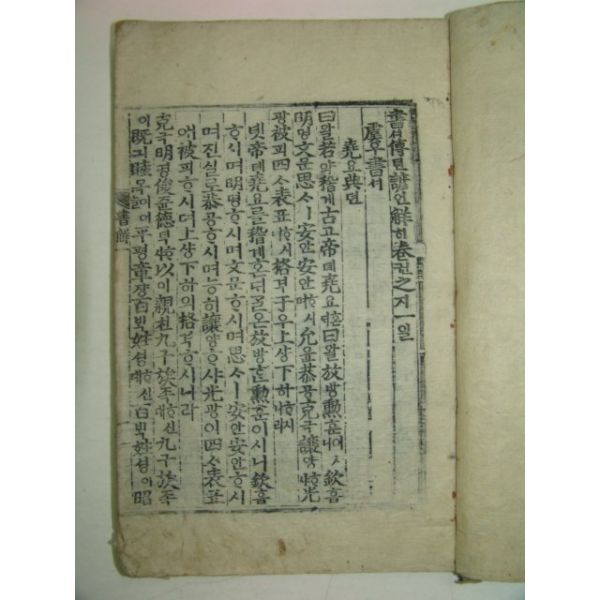 書셔傳뎐諺언解ᄒᆡ卷권之지一일
虞우書셔
堯요典뎐
曰왈若약稽계古고帝뎨堯요혼ᄃᆡ曰왈放방勳훈이시니欽흠
明명文문思ᄉᆞㅣ安안安안ᄒᆞ시며允윤恭공克극讓양ᄒᆞ샤光
광被피四ᄉᆞ表표ᄒᆞ시며格격于우上샹下하ᄒᆞ시니라
녯帝뎨堯요ᄅᆞᆯ稽계혼ᄃᆡᆫ ᄀᆞᆯ온放방勳훈이시니欽흠
ᄒᆞ시며明명ᄒᆞ시며文문ᄒᆞ시며思ᄉᆞㅣ安안安안ᄒᆞ시
며진실로恭공ᄒᆞ시며능히讓양ᄒᆞ샤光광이四ᄉᆞ表표
애被피ᄒᆞ시며上샹下하의格격ᄒᆞ시니라
克극明명俊쥰德덕ᄒᆞ샤以이親친九구族족ᄒᆞ신대九구族족
이既긔睦목이어늘平평章쟝百ᄇᆡᆨ姓셩ᄒᆞ신대百ᄇᆡᆨ姓셩이昭
書解